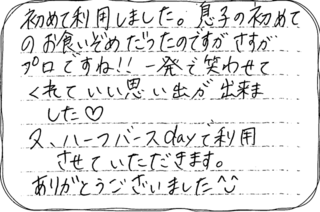 初めて利用しました。息子の初めて
のお食いぞめだったのですがさすが
プロですね!! 一発で笑わせて
くれていい思い出が出来ま
した♡
又、ハーフバースdayで利用
させていただきます。
ありがとうございました^^